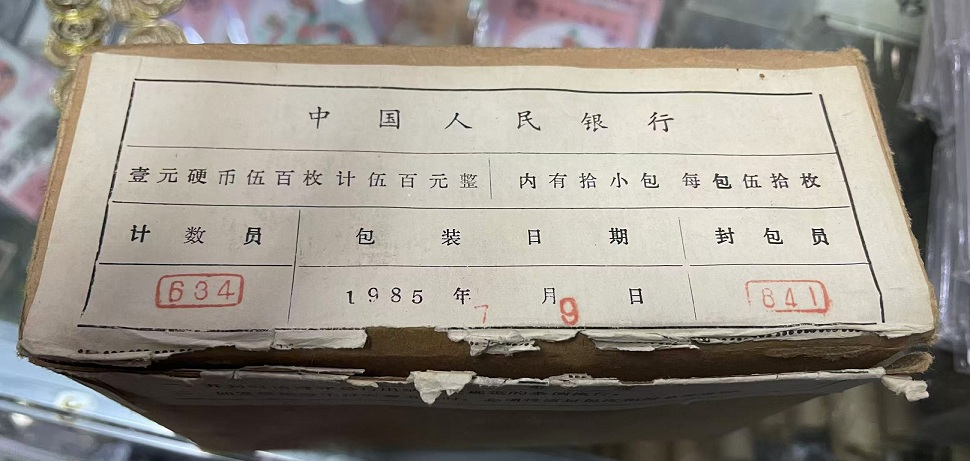 中国人民银行
壹元硬币伍百枚计伍百元整 内有拾小包 每包伍拾枚
计数员 包装日期 封包员
634 1985年7月9日 841